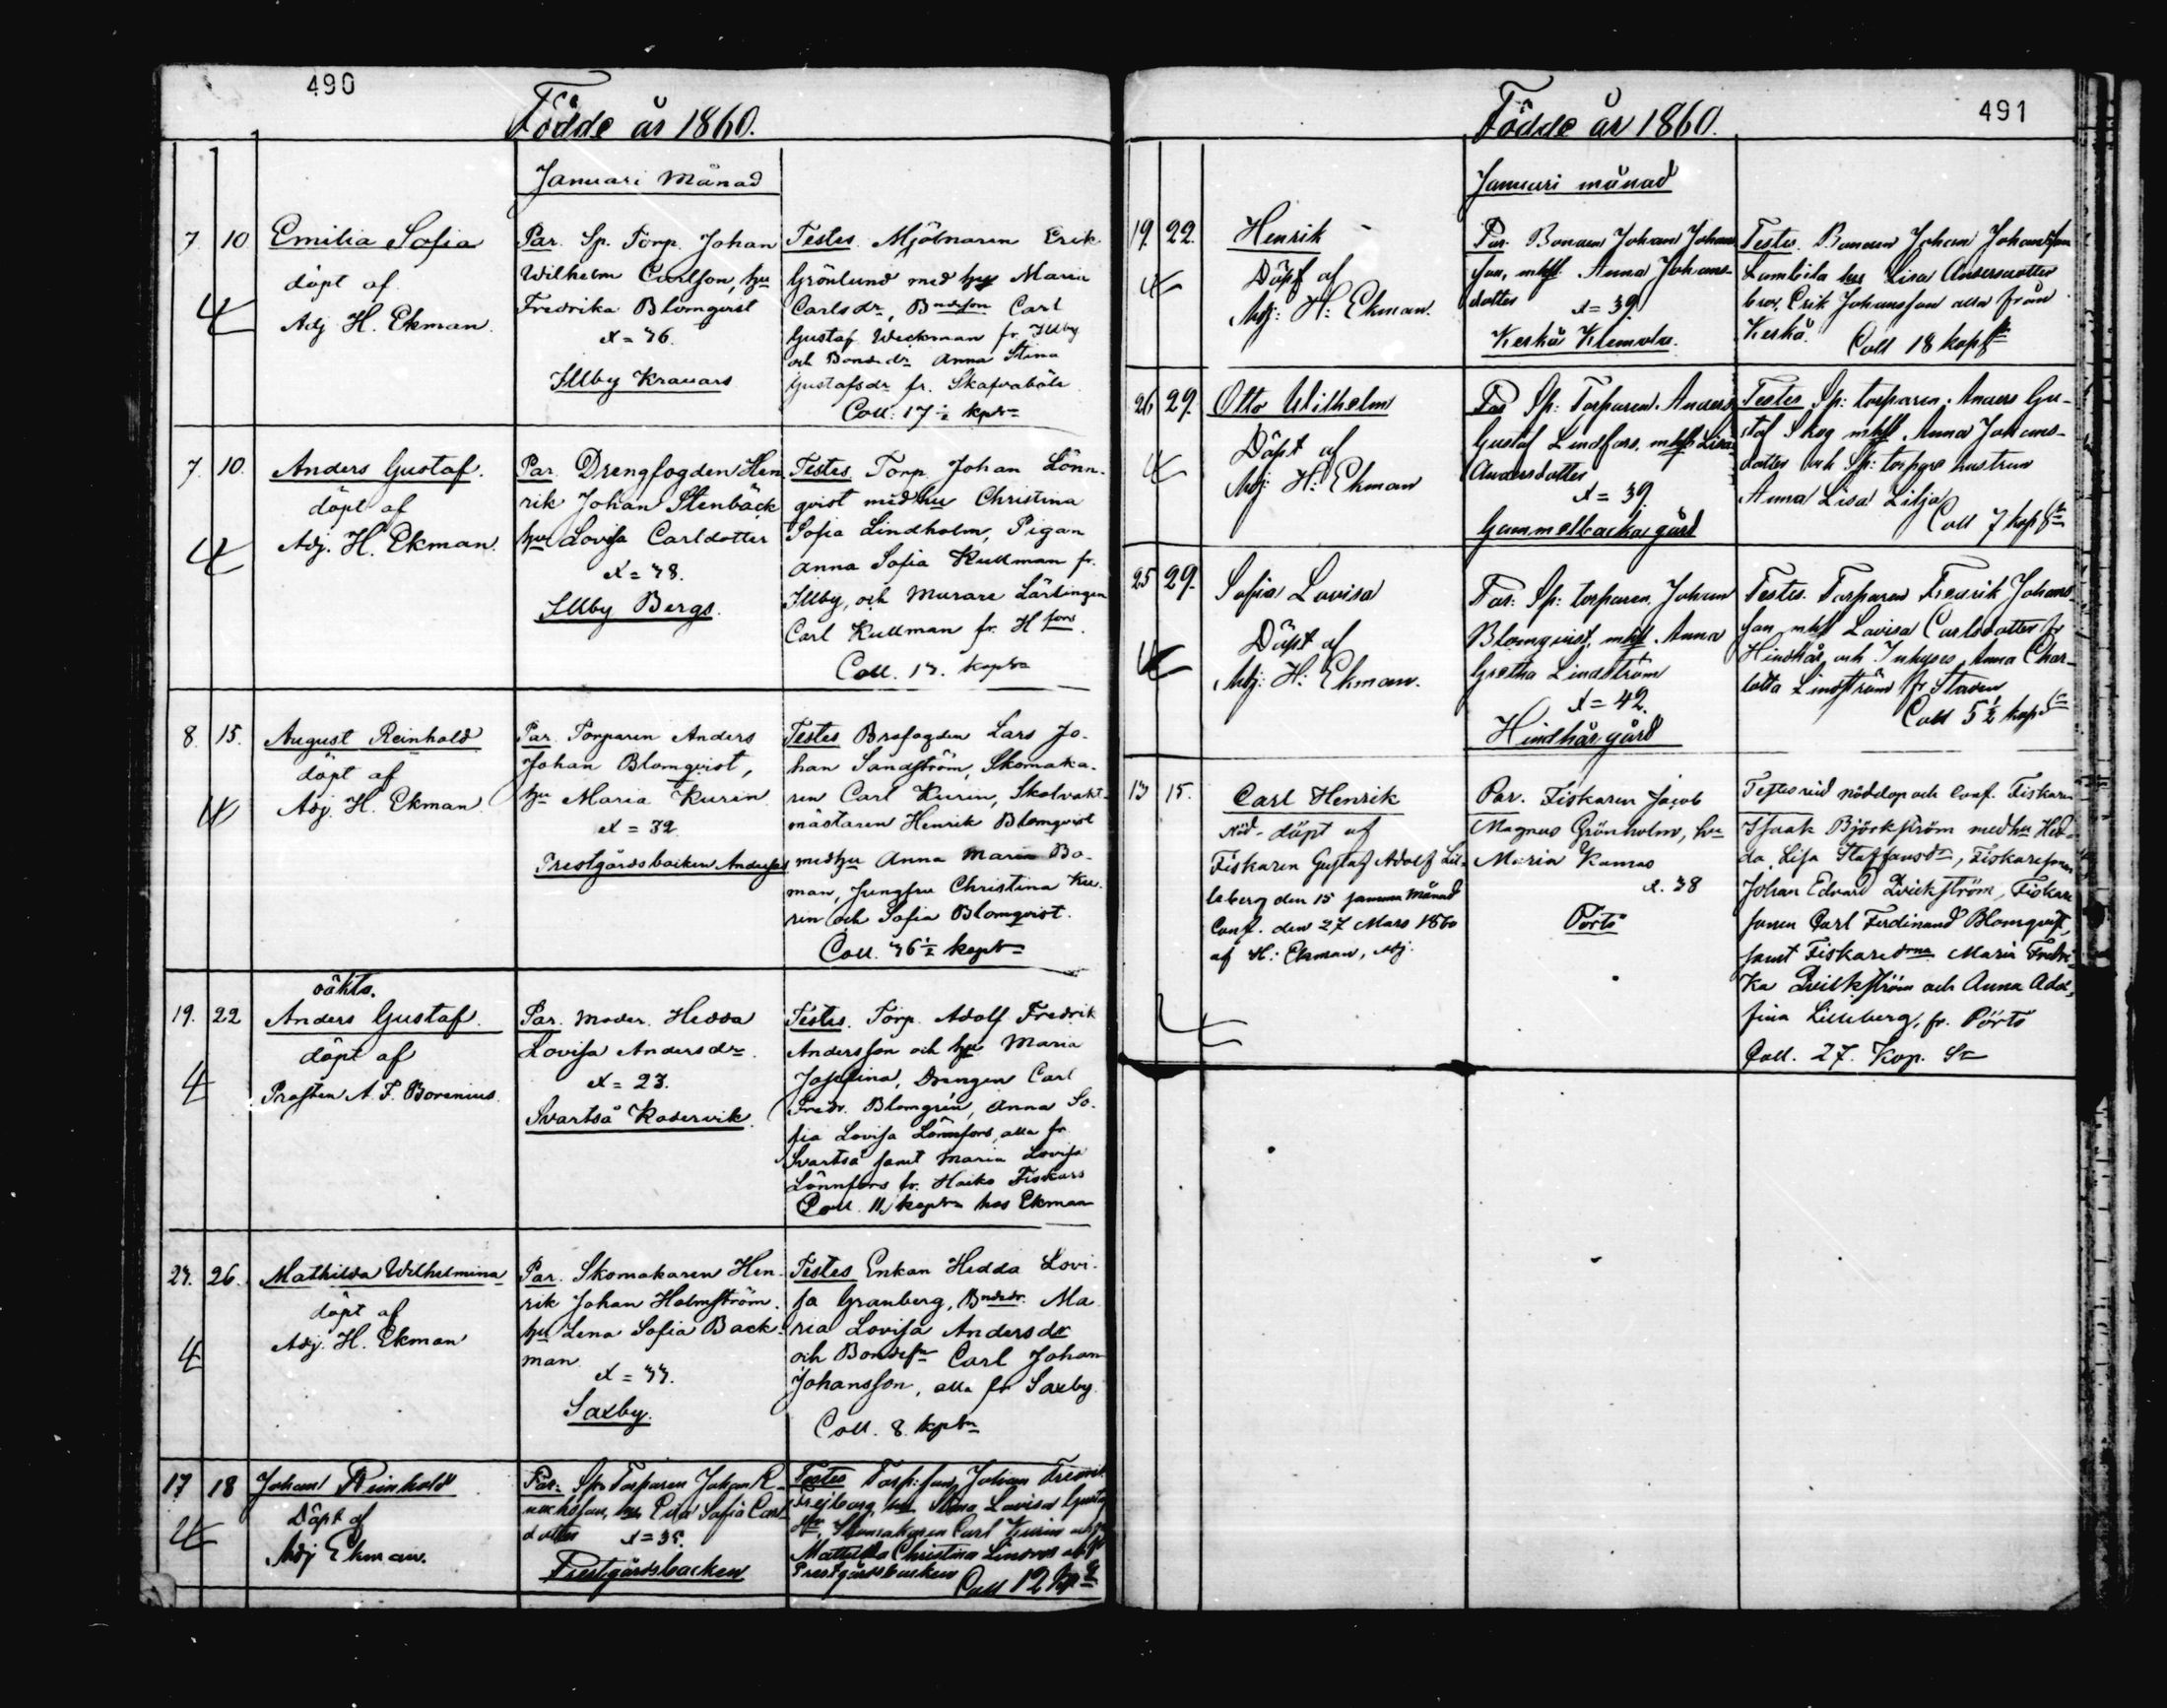 490
Födde år 1860.
Januari Månad
7. 10
Emilia Sofia
döpt af
Adj H. Ekman.
Par. Sp. Torp. Johan
Wilhelm Carlsson, hu
Fredrika Blomqvist
Illby Krauars
Testes. Mjölnaren Erik
Grönlund med hu Maria
Carlsdr, Carl
Gustaf Weckman fr. Illby
och Bondedr Anna Stina
Gustafsdr fr. Skafvaböle
Coll. 17½
7. 10.
Anders Gustaf.
döpt af
Adj. H. Ekman.
Par. Drengfogden Hen
rik Johan Stenbäck
hu Lovisa Carldotter
Illby Bergs.
Testes Torp Johan Lönn-
qvist med hu Christina
Sofia Lindholm, Pigan
Anna Sofia Kullman fr.
Illby, och Murare Lärlingen
Carl Kullman fr. Hfors.
Coll.
8. 15.
August Reinhold
döpt af
Adj. H. Ekman
Par. Torparen Anders
Johan Blomqvist,
hu Maria Kurin
Prestgårdsbacken
Testes Brofogden Lars Jo-
han Sandström, Skomaka-
ren Carl Kurin, Skolvakt-
mästaren Henrik Blomqvist
med hu Anna Maria Bo-
man, Jungfru Christina Ku-
rin och Sofia Blomqvist.
Coll.
oäkta.
19. 22
Anders Gustaf.
döpt af
Prosten A. F. Borenius.
Par. Moder. Hedda
Lovisa Andersdr.
Æ = 23.
Svartså Kodervik.
Testes. Torp. Adolf Fredrik
Andersson och hu Maria
Josefina, Drengen Carl
Fredr. Blomgrén, Anna So-
fia Lovisa Lönnfors, alla fr.
Svartså samt Maria Lovisa
Lönnfors fr. Haiko Fiskars
Coll. 11 hos Ekman
26.
Mathilda Wilhelmina
döpt af
Adj. H. Ekman
Par. Skomakaren Hen-
rik Johan Holmström.
hu Lena Sofia Back-
man.
Saxby.
Testes Enkan Hedda Lovi-
sa Granberg, Bndedr. Ma
ria Lovisa Andersdr
och Carl Johan
Johansson, alla fr Saxby.
Coll. 8.
17 18
Johan Reinhold
Döpt af
Adj Ekman.
Par. Sp. Torparen Johan
Sofia Carl
dotter
Prestgårdsbacken
Testes Johan
Lovisa
Carl Kurin
Christina
Prestgårdsbacken Coll 12
491
Födde år 1860.
Januari månad
19. 22.
Henrik
Döpt af
Adj: H: Ekman.
Par. Bonden Johan Johans
son, mhf. Anna Johans-
dotter
Æ = 39
Kerkå Klemola.
Testes. Bonden Johan Johansson
hu Lisa Andersdotter
Erik Johansson alla från
Kerkå.
Coll 18 kop
26 29.
Otto Wilhelm
Döpt af
Adj: H: Ekman
Par Sp: Torparen Anders
Gustaf Lindfors, mhf Lisa
Andersdotter
Æ = 39.
Gammelbacka gård
Testes Sp: torparen Anders Gu-
staf Skog mhf. Anna Johans-
dotter och Sp: torpare hustrun
Anna Lisa Lilja
Coll 7 kop
25 29.
Sofia Lovisa
Döpt af
Adj: H: Ekman.
Par: Sp: torparen Johan
Blomqvist, mhf. Anna
Gretha Lindström
Æ = 42.
Hindhår gård
Testes. Torparen Fredrik Johans-
son mhf Lovisa Carlsdotter fr
Hindhår och Inhyses Anna Char-
lotta Lindström fr Staden
Coll 5½ kop
13 15.
Carl Henrik
Nöd-döpt af
Fiskaren Gustaf Adolf Lil-
leberg den 15 samma månad
Conf. den 27 Mars 1860
af H: Ekman, Adj.
Par. Fiskaren Jacob
Magnus Grönholm, hu
Maria
Æ. 38
Pörtö
Testes vid nöddop och Conf. Fiskaren
Isaak Björkström med hu Hed-
da Lisa Staffansdr, Fiskaresonen
Johan Edvard Qvickström, Fiskare
sonen Carl Ferdinand Blomqvist,
samt Maria Fredri-
ka Qvickström och Anna Adol-
fina Lilleberg, fr. Pörtö
Coll. 27. Kop. Sr